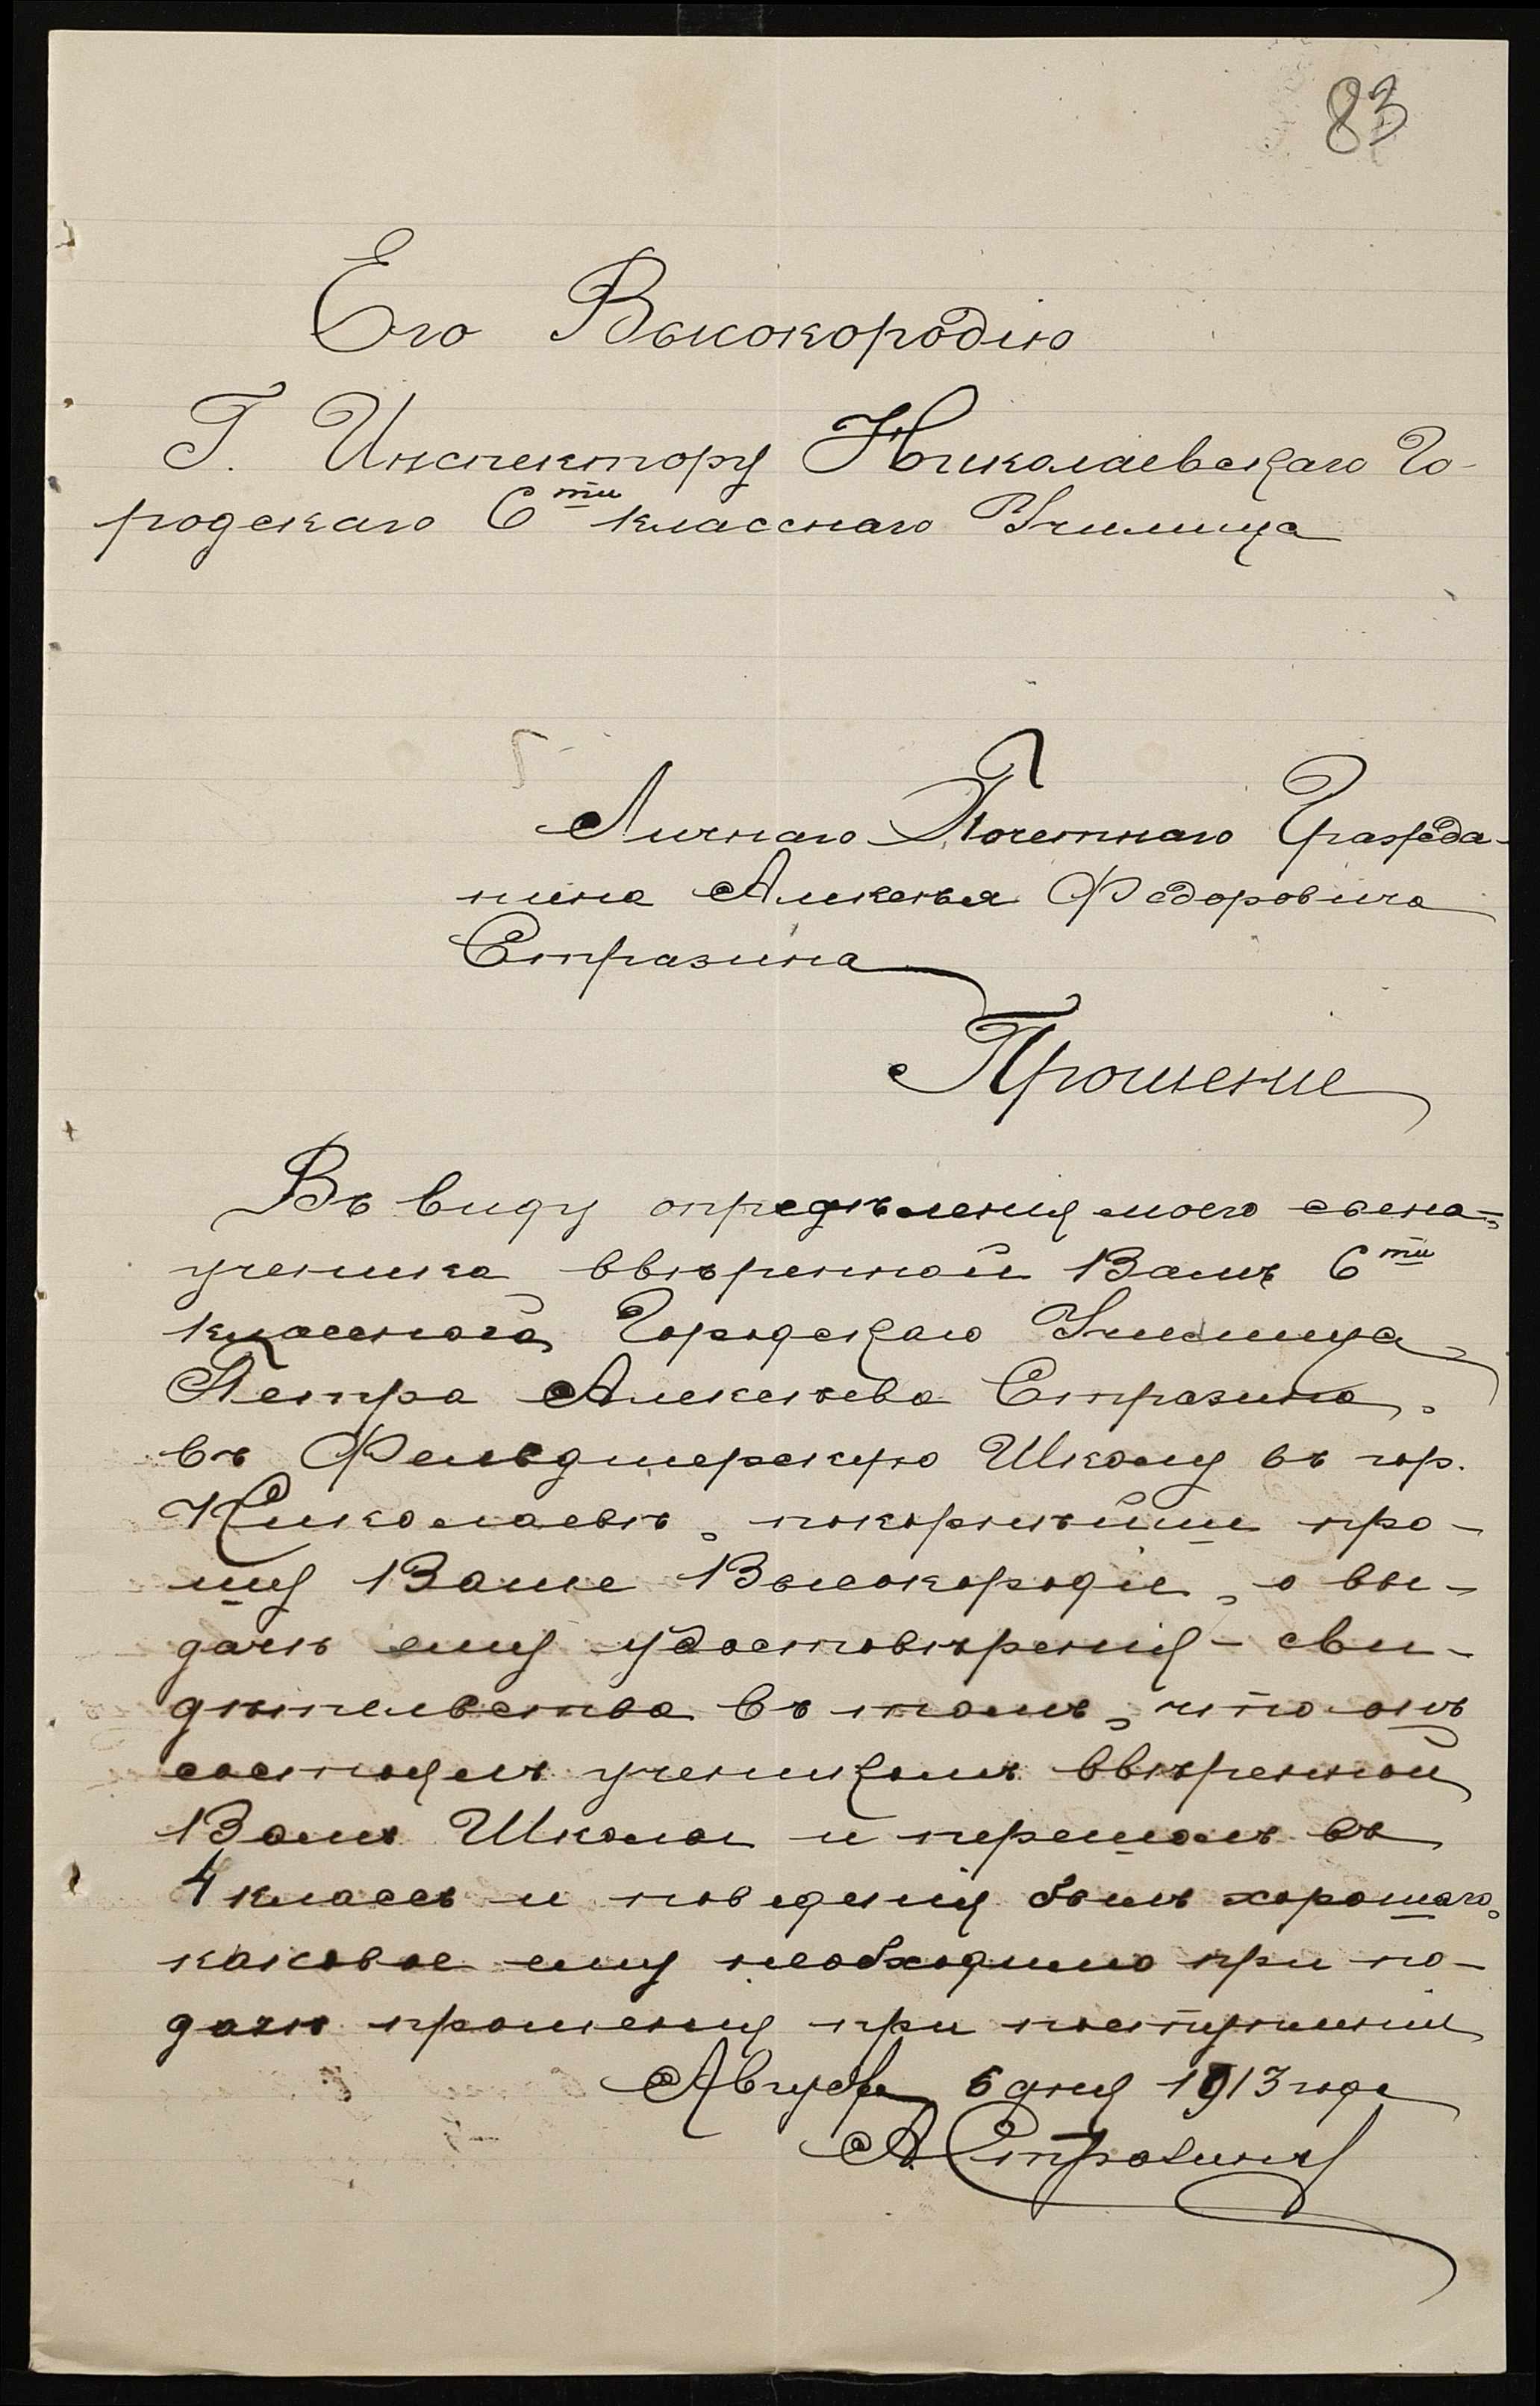 83
Его Высокородію
Г. Инспектору Николаевскаго Го-
родскаго 6ти класснаго Училища
Личнаго Почетнаго Гражда-
нина Алексѣя Федоровича
Стразина
Прошеніе
Въ виду опредѣленія моего сына,
ученика ввѣренной Вамъ 6ти
класснаго Городскаго Училища,
Петра Алексѣева Стразина,
въ Фельдшерскую Школу въ гор.
Николаевѣ, покорнѣйше про-
шу Ваше Высокородіе, о вы-
дачѣ ему удостовѣренія - сви-
дѣтельства въ томъ, что онъ
состоялъ ученикомъ ввѣренной
Вамъ Школы и перешолъ въ
4 классъ и поведенія былъ хорошаго,
каковое ему необходимо при по-
дачѣ прошенія при поступленіи
Августа 6 дня 1913 года
А Стразинъ